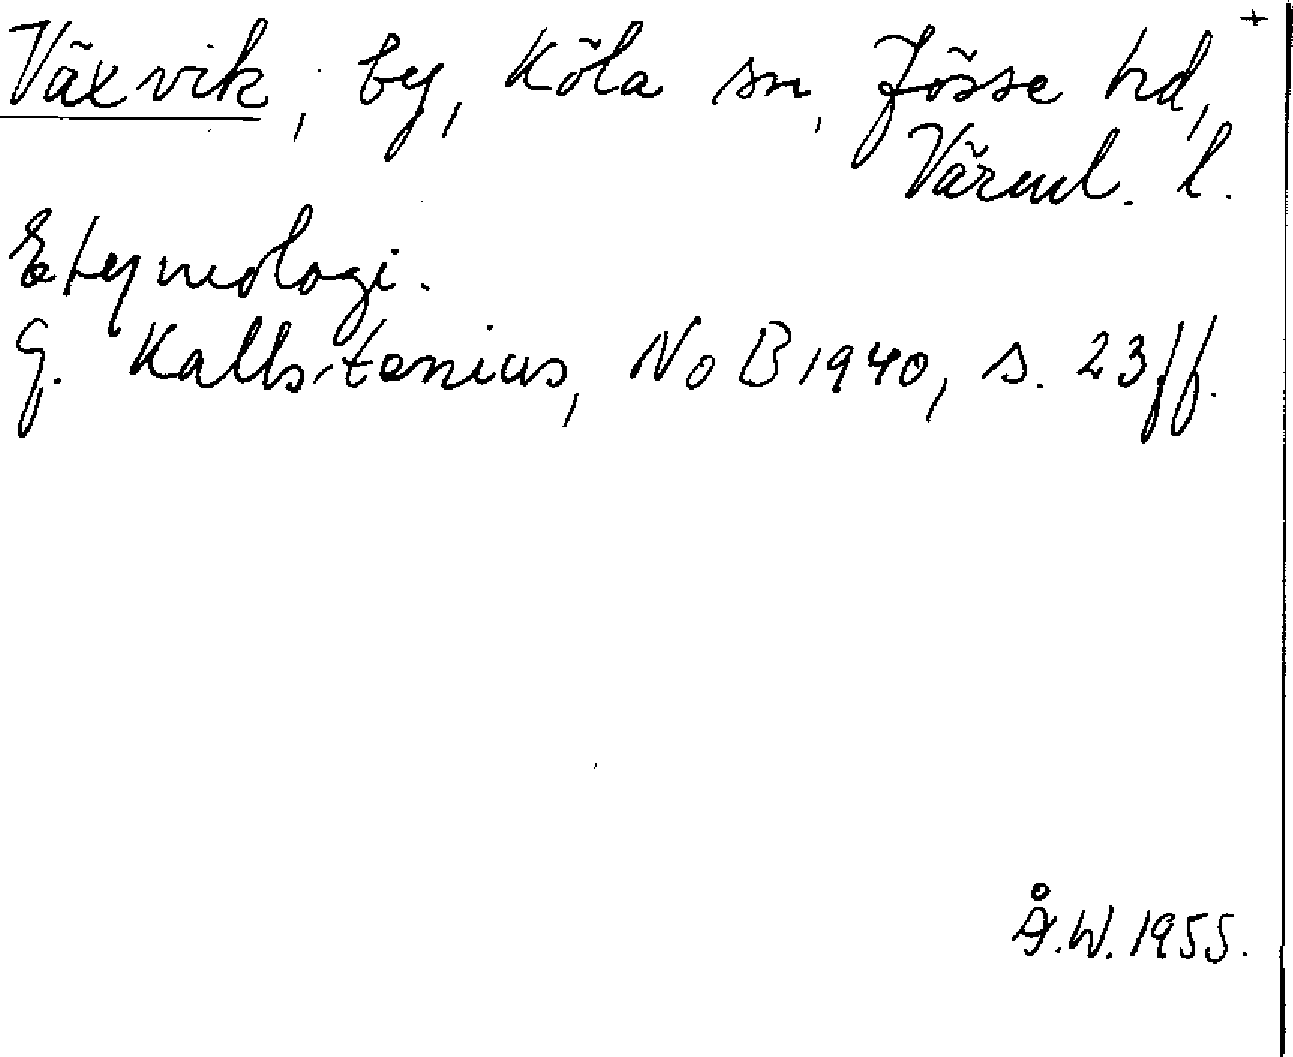 Växvik, by, Köla sn, Jösse hd, +
Värml. l.
Etymologi.
G. Kallstenius, NoB 1940, s. 23 ff.
Å.W. 1955.